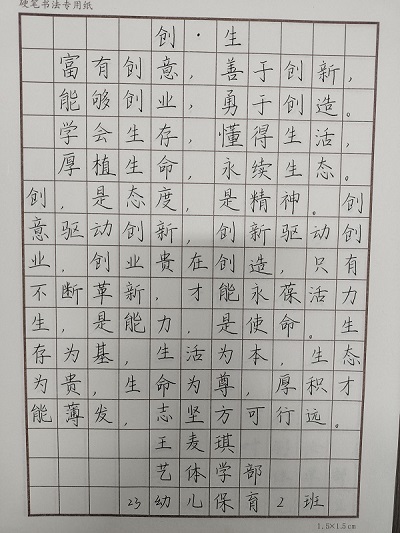 硬笔书法专用纸
创·生
富有创意，善于创新，
能够创业，勇于创造。
学会生存，懂得生活，
厚植生命，永续生态。
创，是态度，是精神。创
意驱动创新，创新驱动创
业，创业贵在创造，只有
不断革新，才能永葆活力
生，是能力，是使命。生
存为基，生活为本，生态
为贵，生命为尊，厚积才
能薄发，志坚方可行远。
王麦琪
艺体学部
23幼儿保育2班
1.5×1.5cm